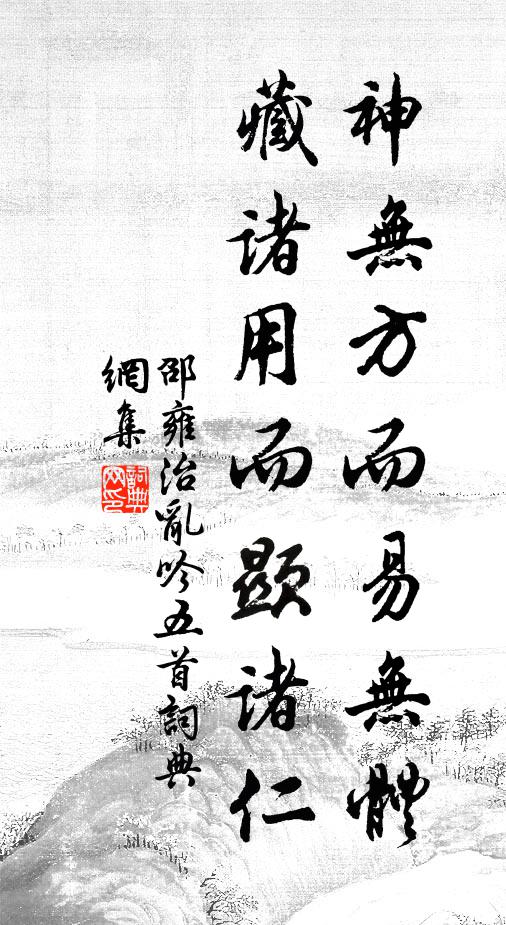 神無方而易無體
藏諸用而顯諸仁
邵雍治亂吟五首詞典
網集
詞典
网印